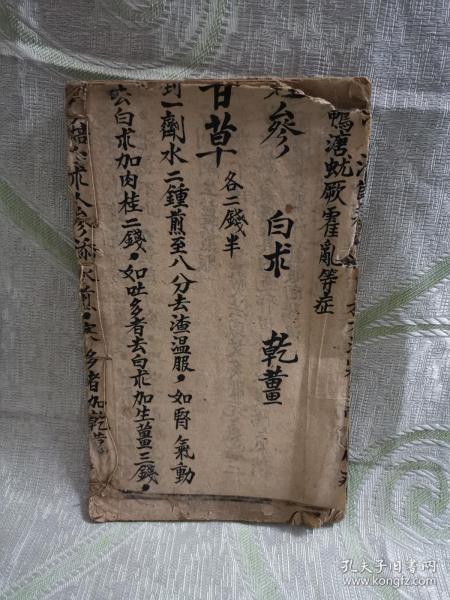 鴨溏蚘厥霍亂等症
參 白朮 乾薑
甘草 各二錢半
到一劑水二鍾煎至八分去渣温服，如腎氣動
去白朮加肉桂二錢，如吐多者去白朮加生薑三錢，
多者加乾薑
孔夫子旧书网
www.kongfz.com